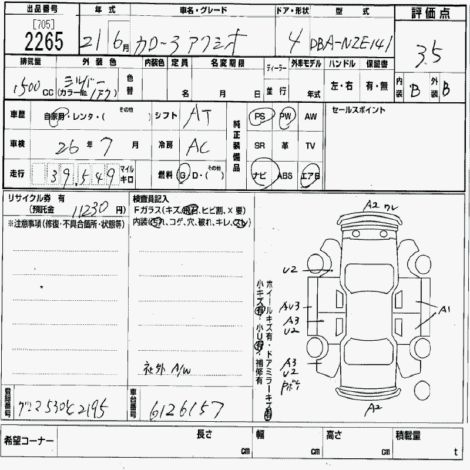 出品番号 年式 車名・グレード ドア・形状 型式 評価点
[705]
2265 21年6月 カローラアクシオ 4 DBA-NZE141 3.5
排気量 外装色 内装色 定員 名変期限 ディーラー 外車モデル ハンドル 保証書 内装 B 外装 B
1500CC シルバー (カラーNo. 1F7) 色替 名 月 日 並行 年 左・右 有・無
車歴 自家用・レンタ・( その他 ) シフト AT 純正装備品 PS PW AW セールスポイント
車検 26年7月 冷房 AC SR 革 TV
走行 39,549 マイル キロ 燃料 G・D・( その他 ) ナビ ABS エアB
リサイクル券 有 (預託金 11230円)
※注意事項(修復・不具合箇所・状態等)
検査員記入
Fガラス(キズ、飛石、ヒビ割、X 要)
内装(汚れ、コゲ、穴、破れ、キレ、スレ)
社外 A/W
ホイールキズ有・ドアミラーキズ有
小キズ有・小凹有・補修有
A2 ワレ
U2
AU3
A3
U2
A1
A3
U2
A2
登録番号 530 2195
車台番号 6126157
希望コーナー 長さ cm 幅 cm 高さ cm 積載量 t